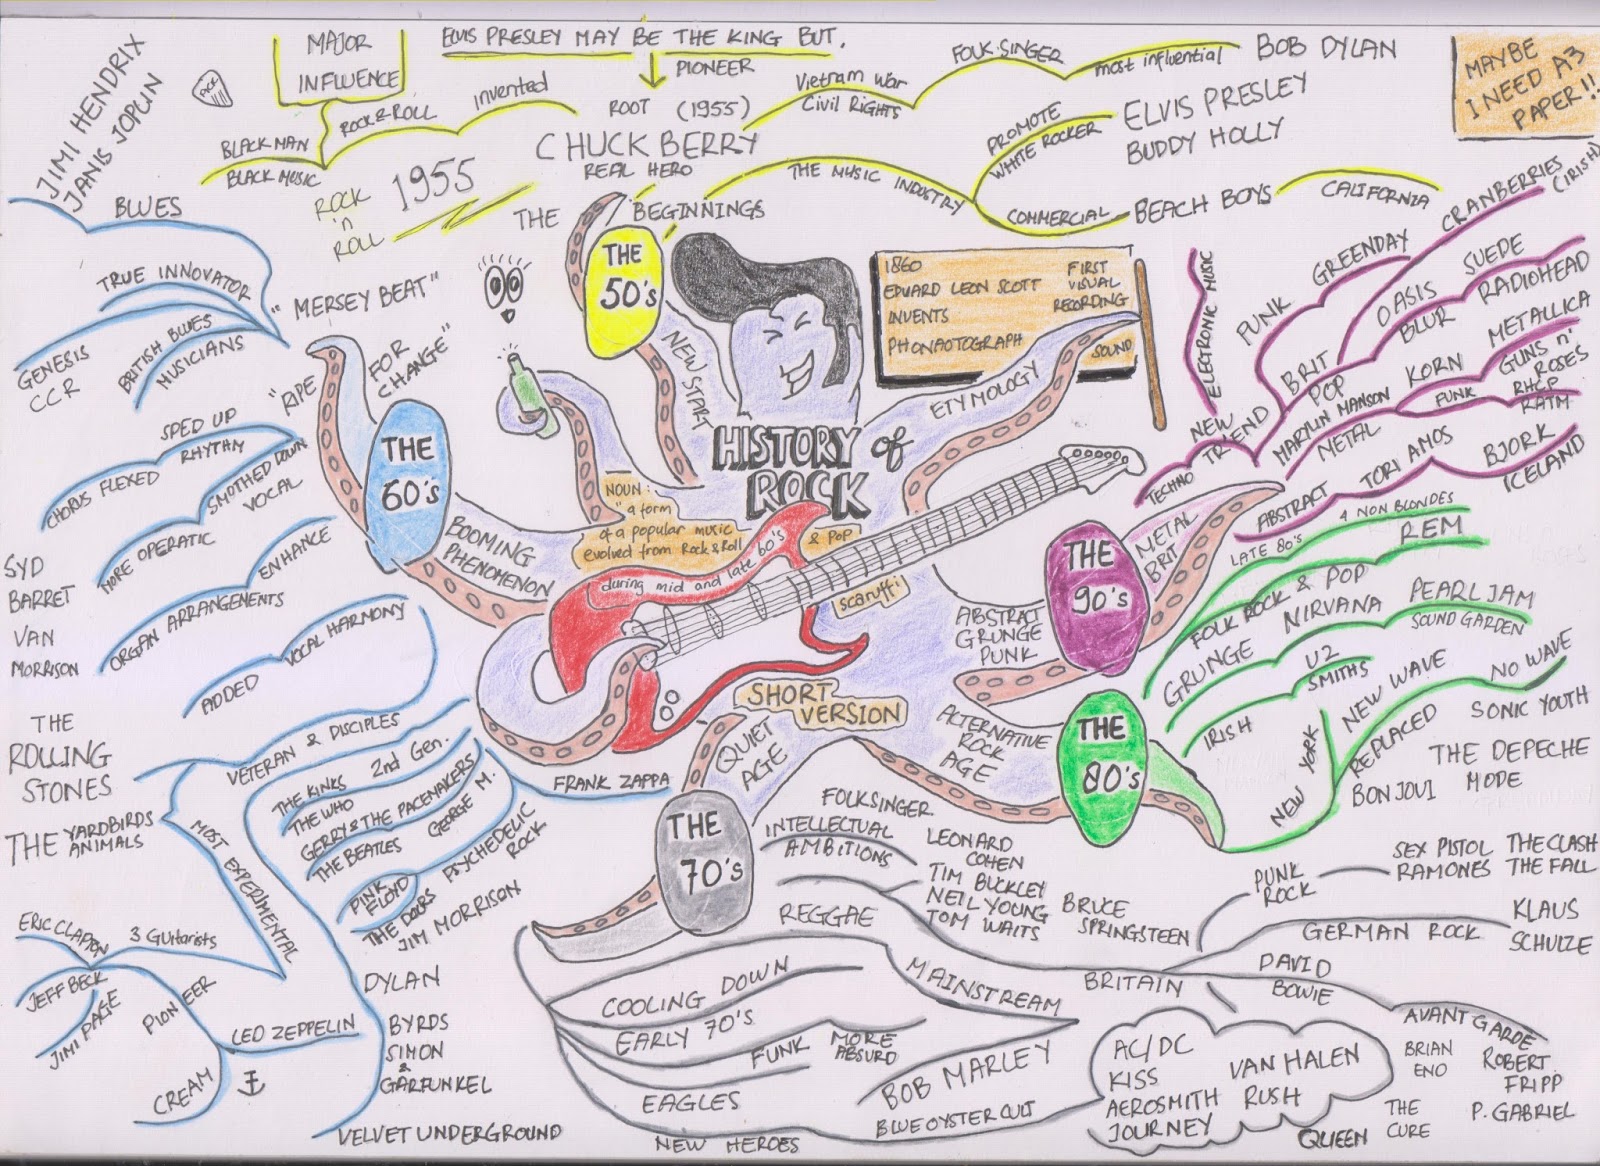 MAJOR
INFLUENCE
ELVIS PRESLEY MAY BE THE KING BUT.
PIONEER
ROOT (1955)
CHUCK BERRY
REAL HERO
BLACK MAN
BLACK MUSIC
ROCK & ROLL
invented
ROCK
'n'
ROLL
1955
THE
BEGINNINGS
Vietnam War
Civil Rights
FOLK SINGER
most influential
BOB DYLAN
THE MUSIC INDUSTRY
PROMOTE
WHITE ROCKER
ELVIS PRESLEY
BUDDY HOLLY
COMMERCIAL
BEACH BOYS
CALIFORNIA
MAYBE
I NEED A3
PAPER!!
THE
50's
NEW START
1860
EDUARD LEON SCOTT
INVENTS
PHONAOTOGRAPH
FIRST
VISUAL
RECORDING
SOUND
ETYMOLOGY
HISTORY of
ROCK
NOUN:
"a form
of a popular music
evolved from Rock & Roll
& POP
during mid and late 60's
scaruffi
SHORT
VERSION
JIMI HENDRIX
JANIS JOPLIN
PICK
BLUES
TRUE INNOVATOR
BRITISH BLUES
MUSICIANS
GENESIS
CCR
"MERSEY BEAT"
"RIPE
FOR
CHANGE"
THE
60's
BOOMING
PHENOMENON
SPED UP
RHYTHM
CHORUS FLEXED
SMOTHED DOWN
VOCAL
MORE OPERATIC
ENHANCE
ORGAN ARRANGEMENTS
VOCAL HARMONY
ADDED
SYD
BARRET
VAN
MORRISON
THE
ROLLING
STONES
THE YARDBIRDS
ANIMALS
VETERAN & DISCIPLES
MOST EXPERIMENTAL
2nd Gen.
THE KINKS
THE WHO
GERRY & THE PACEMAKERS
THE BEATLES
GEORGE M.
FRANK ZAPPA
PINK
FLOYD
PSYCHEDELIC
ROCK
THE DOORS
JIM MORRISON
ERIC CLAPTON
3 Guitarists
JEFF BECK
JIMI PAGE
PIONEER
LED ZEPPELIN
CREAM
DYLAN
BYRDS
SIMON
&
GARFUNKEL
VELVET UNDERGROUND
QUIET
AGE
THE
70's
FOLKSINGER
INTELLECTUAL
AMBITIONS
LEONARD
COHEN
TIM BUCKLEY
NEIL YOUNG
TOM WAITS
BRUCE
SPRINGSTEEN
REGGAE
MAINSTREAM
COOLING DOWN
EARLY 70'S
FUNK
MORE
ABSURD
BOB MARLEY
EAGLES
BLUE OYSTER CULT
NEW HEROES
BRITAIN
PUNK
ROCK
SEX PISTOL
RAMONES
THE CLASH
THE FALL
GERMAN ROCK
KLAUS
SCHULZE
DAVID
BOWIE
AVANT GARDE
BRIAN
ENO
ROBERT
FRIPP
P. GABRIEL
THE
CURE
AC/DC
KISS
AEROSMITH
JOURNEY
VAN HALEN
RUSH
QUEEN
ALTERNATIVE
ROCK
AGE
THE
80's
LATE 80's
4 NON BLONDES
FOLK ROCK & POP
REM
GRUNGE
NIRVANA
PEARL JAM
SOUND GARDEN
IRISH
U2
SMITHS
NEW YORK
NEW WAVE
REPLACED
NO WAVE
SONIC YOUTH
BON JOVI
THE DEPECHE
MODE
ABSTRACT
GRUNGE
PUNK
THE
90's
METAL
BRIT
NEW
TREND
TECHNO
ELECTRONIC MUSIC
PUNK
GREENDAY
CRANBERRIES
(IRISH)
BRIT
POP
OASIS
BLUR
SUEDE
RADIOHEAD
MARYLIN MANSON
METAL
KORN
METALLICA
GUNS n'
ROSES
FUNK
RHCP
RATM
ABSTRACT
TORI AMOS
BJORK
ICELAND